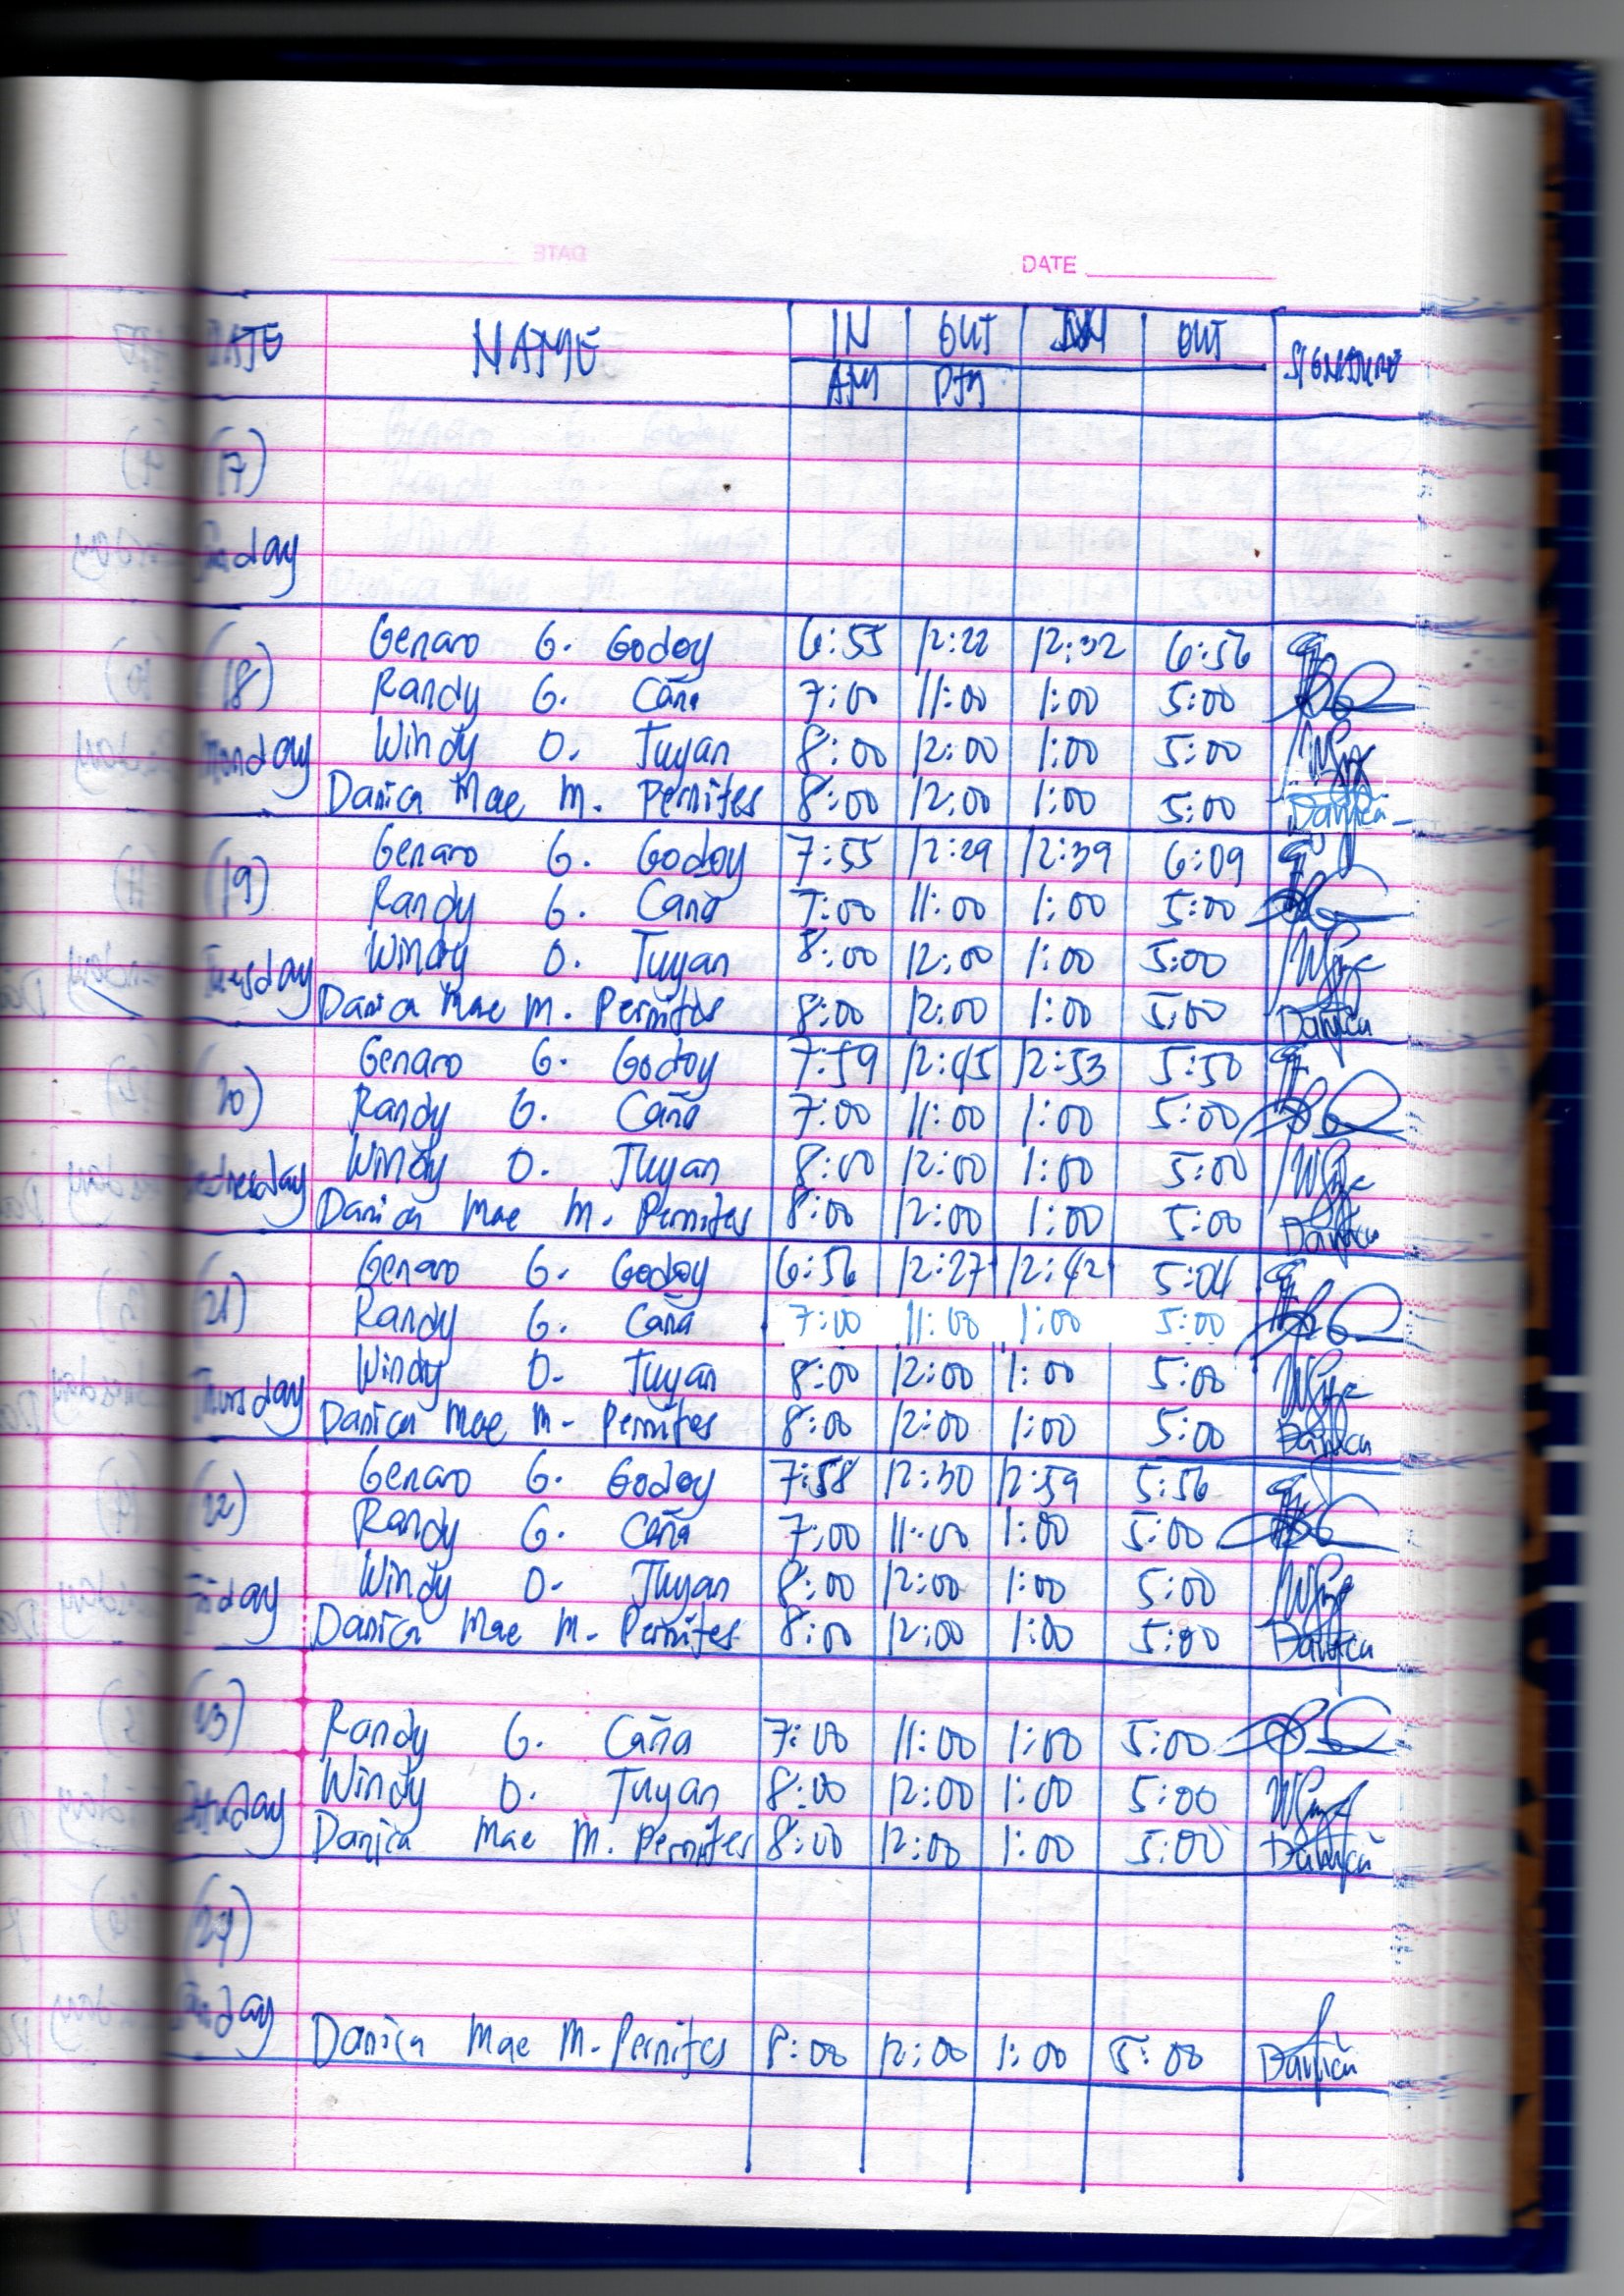 DATE
DATE NAME IN OUT IN OUT SIGNATURE
AM PM
(17)
Sunday
Genaro G. Godoy 6:55 12:22 12:32 6:56
(18) Randy G. Caña 7:00 11:00 1:00 5:00
Monday Windy O. Tuyan 8:00 12:00 1:00 5:00
Danica Mae M. Pernites 8:00 12:00 1:00 5:00 Danica
Genaro G. Godoy 7:55 12:29 12:39 6:09
(19) Randy G. Caña 7:00 11:00 1:00 5:00
Tuesday Windy O. Tuyan 8:00 12:00 1:00 5:00
Danica Mae M. Pernites 8:00 12:00 1:00 5:00 Danica
Genaro G. Godoy 7:59 12:45 12:53 5:50
20) Randy G. Caña 7:00 11:00 1:00 5:00
Wednesday Windy O. Tuyan 8:00 12:00 1:00 5:00
Danica Mae M. Pernites 8:00 12:00 1:00 5:00 Danica
Genaro G. Godoy 6:56 12:27 12:42 5:04
(21) Randy G. Caña 7:00 11:00 1:00 5:00
Thursday Windy O. Tuyan 8:00 12:00 1:00 5:00
Danica Mae M. Pernites 8:00 12:00 1:00 5:00 Danica
Genaro G. Godoy 7:58 12:30 12:59 5:56
(22) Randy G. Caña 7:00 11:00 1:00 5:00
Friday Windy O. Tuyan 8:00 12:00 1:00 5:00
Danica Mae M. Pernites 8:00 12:00 1:00 5:00 Danica
(23) Randy G. Caña 7:00 11:00 1:00 5:00
Saturday Windy O. Tuyan 8:00 12:00 1:00 5:00
Danica Mae M. Pernites 8:00 12:00 1:00 5:00 Danica
(24)
Sunday
Danica Mae M. Pernites 8:00 12:00 1:00 5:00 Danica